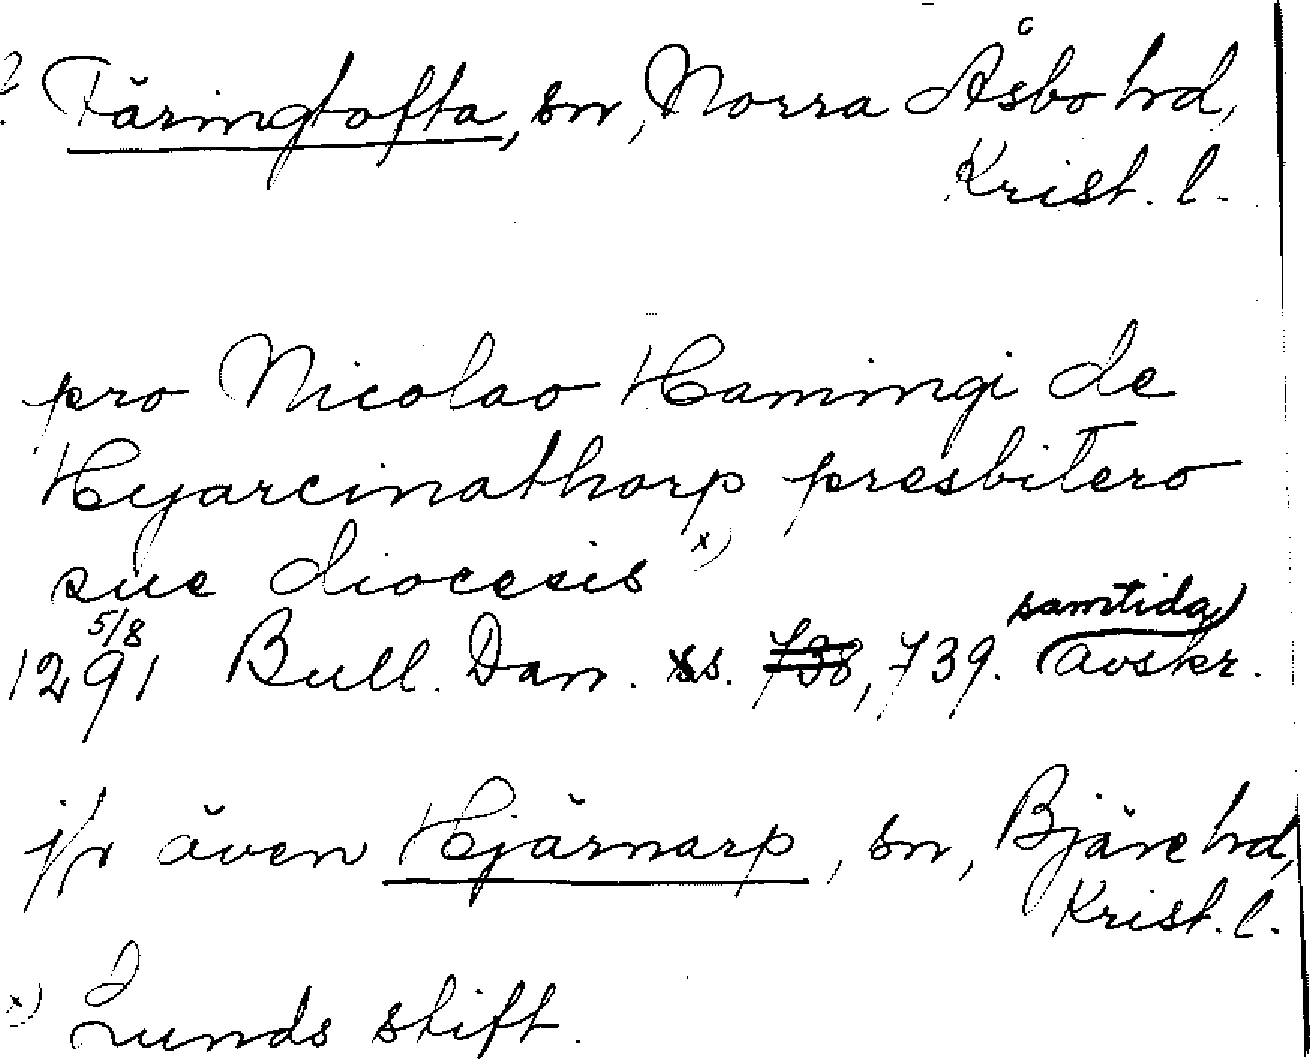 ? Färingtofta, sn, Norra Åsbo hrd,
Krist. l.
pro Nicolao Hamingi de
Hyarcinathorp presbitero
sue diocesis x)
1291 5/8 Bull. Dan. s. 738, 739. (samtida) avskr.
jfr även Hjärnarp, sn, Bjäre hrd,
Krist. l.
x) Lunds stift.